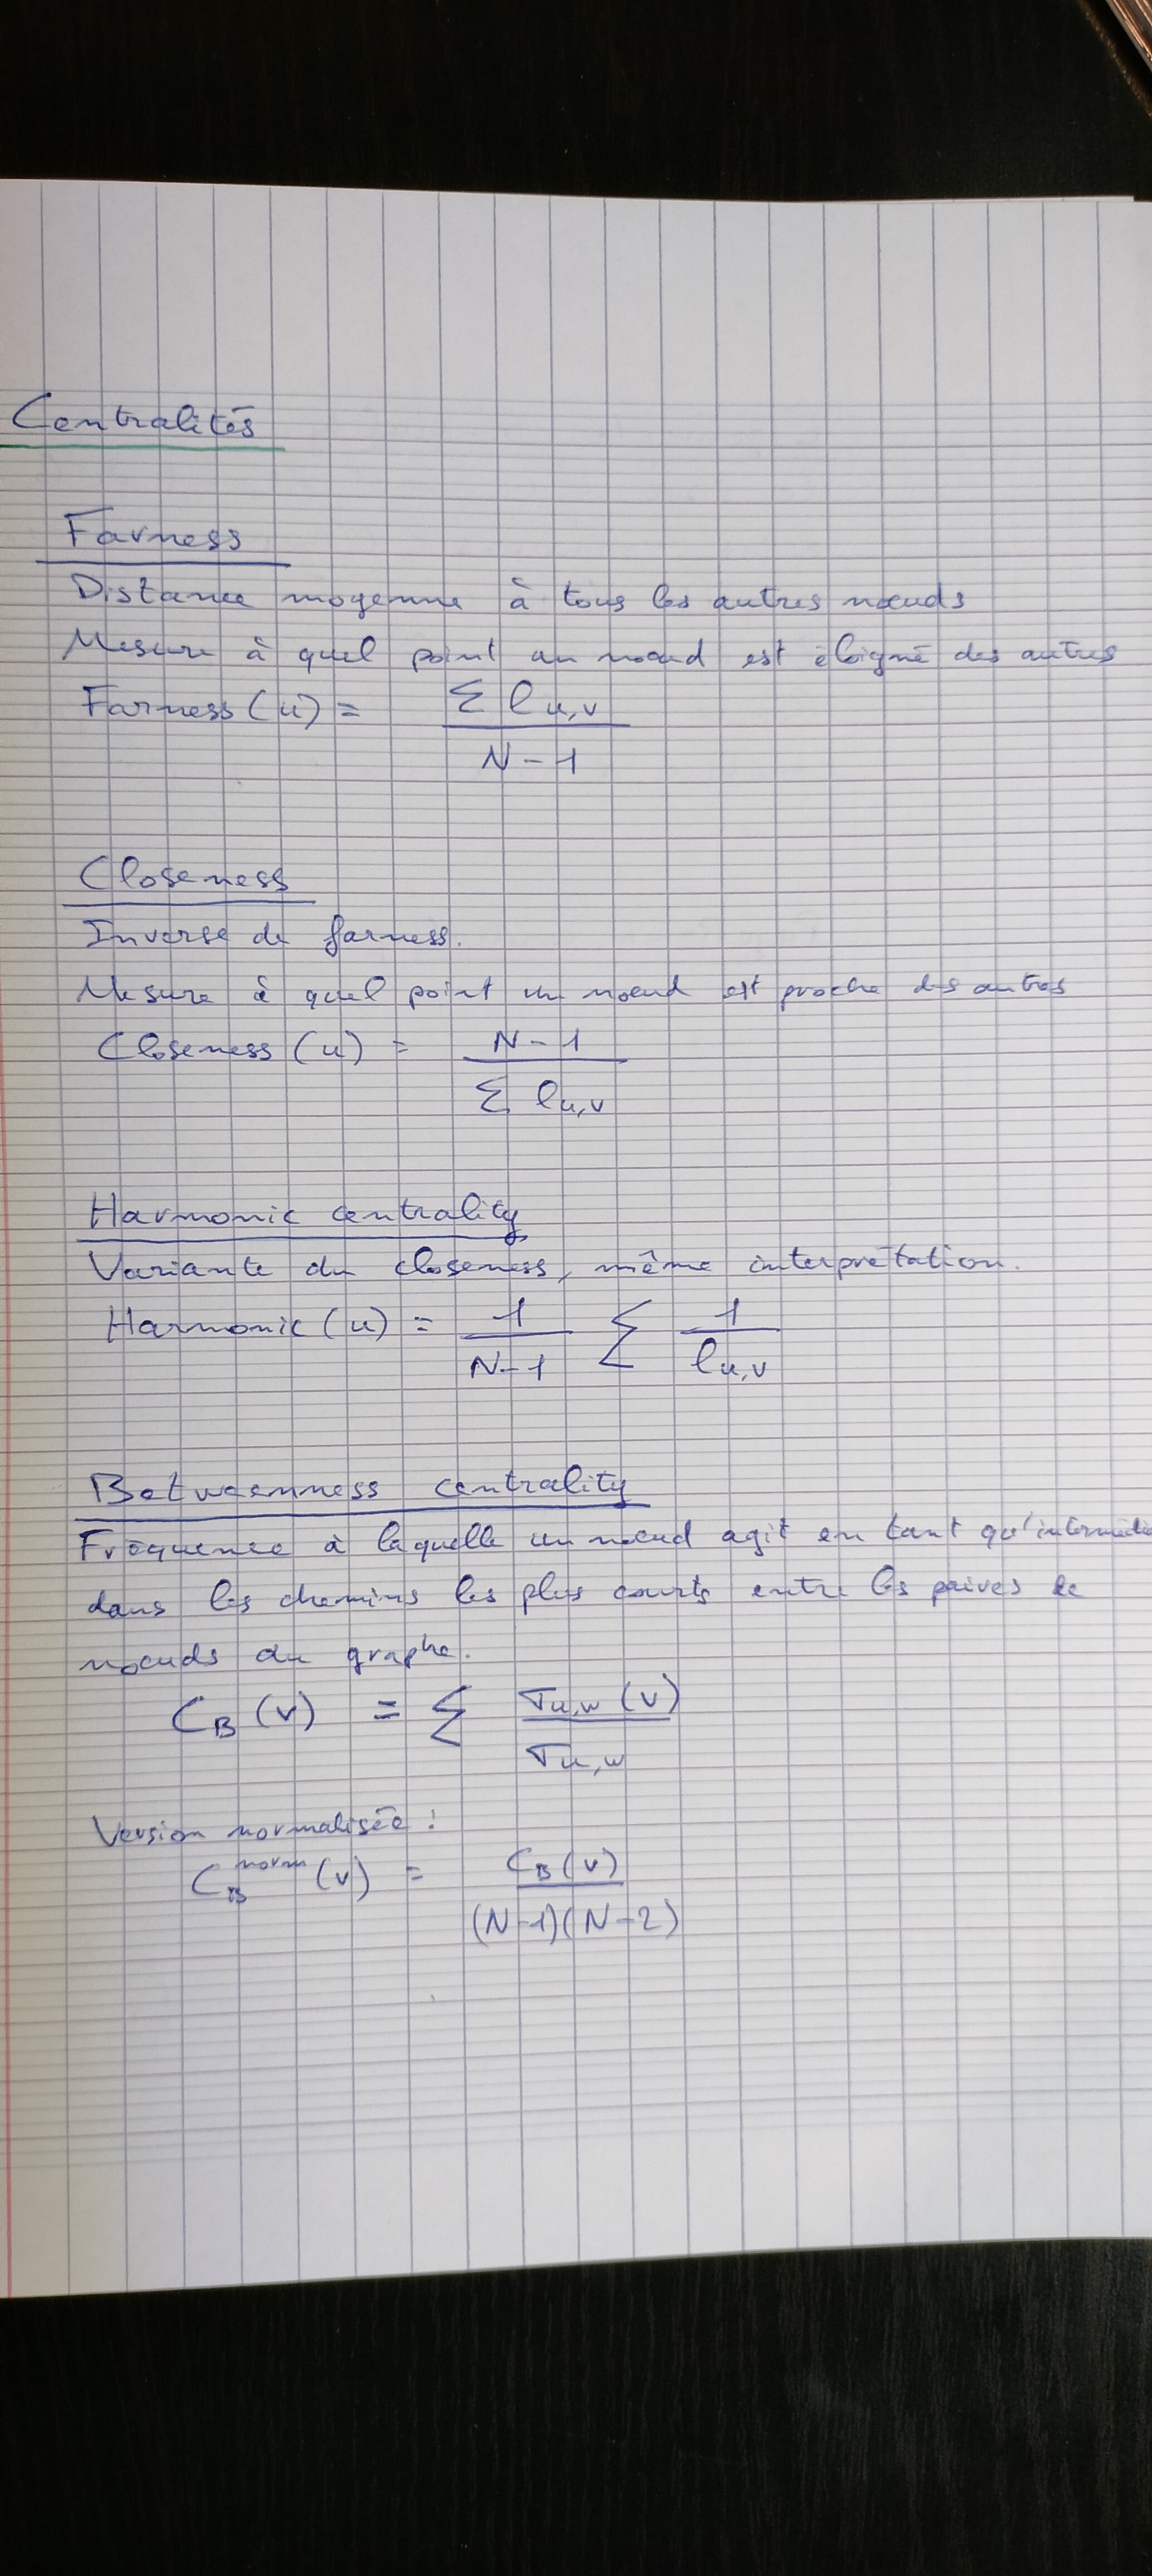 Centralités
Farness
Distance moyenne à tous les autres nœuds
Mesure à quel point un nœud est éloigné des autres
Farness(u) = Σ l u,v / N-1
Closeness
Inverse de farness.
Mesure à quel point un nœud est proche des autres
Closeness(u) = N-1 / Σ l u,v
Harmonic centrality
Variante du closeness, même interprétation.
Harmonic(u) = 1 / N-1 Σ 1 / l u,v
Betweenness centrality
Fréquence à laquelle un nœud agit en tant qu'intermédi
dans les chemins les plus courts entre les paires de
nœuds du graphe.
C_B (v) = Σ σ u,w (v) / σ u,w
Version normalisée :
C_B^norm (v) = C_B(v) / (N-1)(N-2)